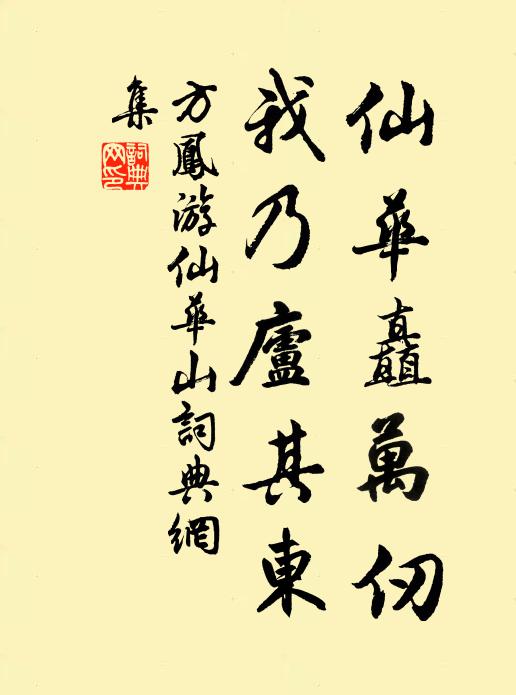 仙華矗萬仞
我乃廬其東
方鳳游仙華山詞典網
集
詞典
网印